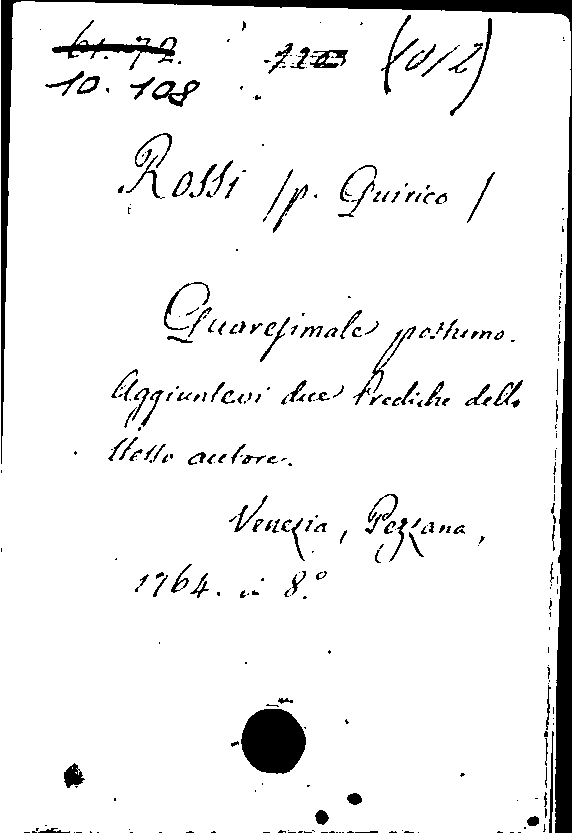 61. 72. 7203 (1012)
10. 108
Rossi / p. Quirico /
Quaresimale postumo.
Aggiuntevi due Prediche dello
stesso autore.
Venezia, Pezzana,
1764. in 8.°